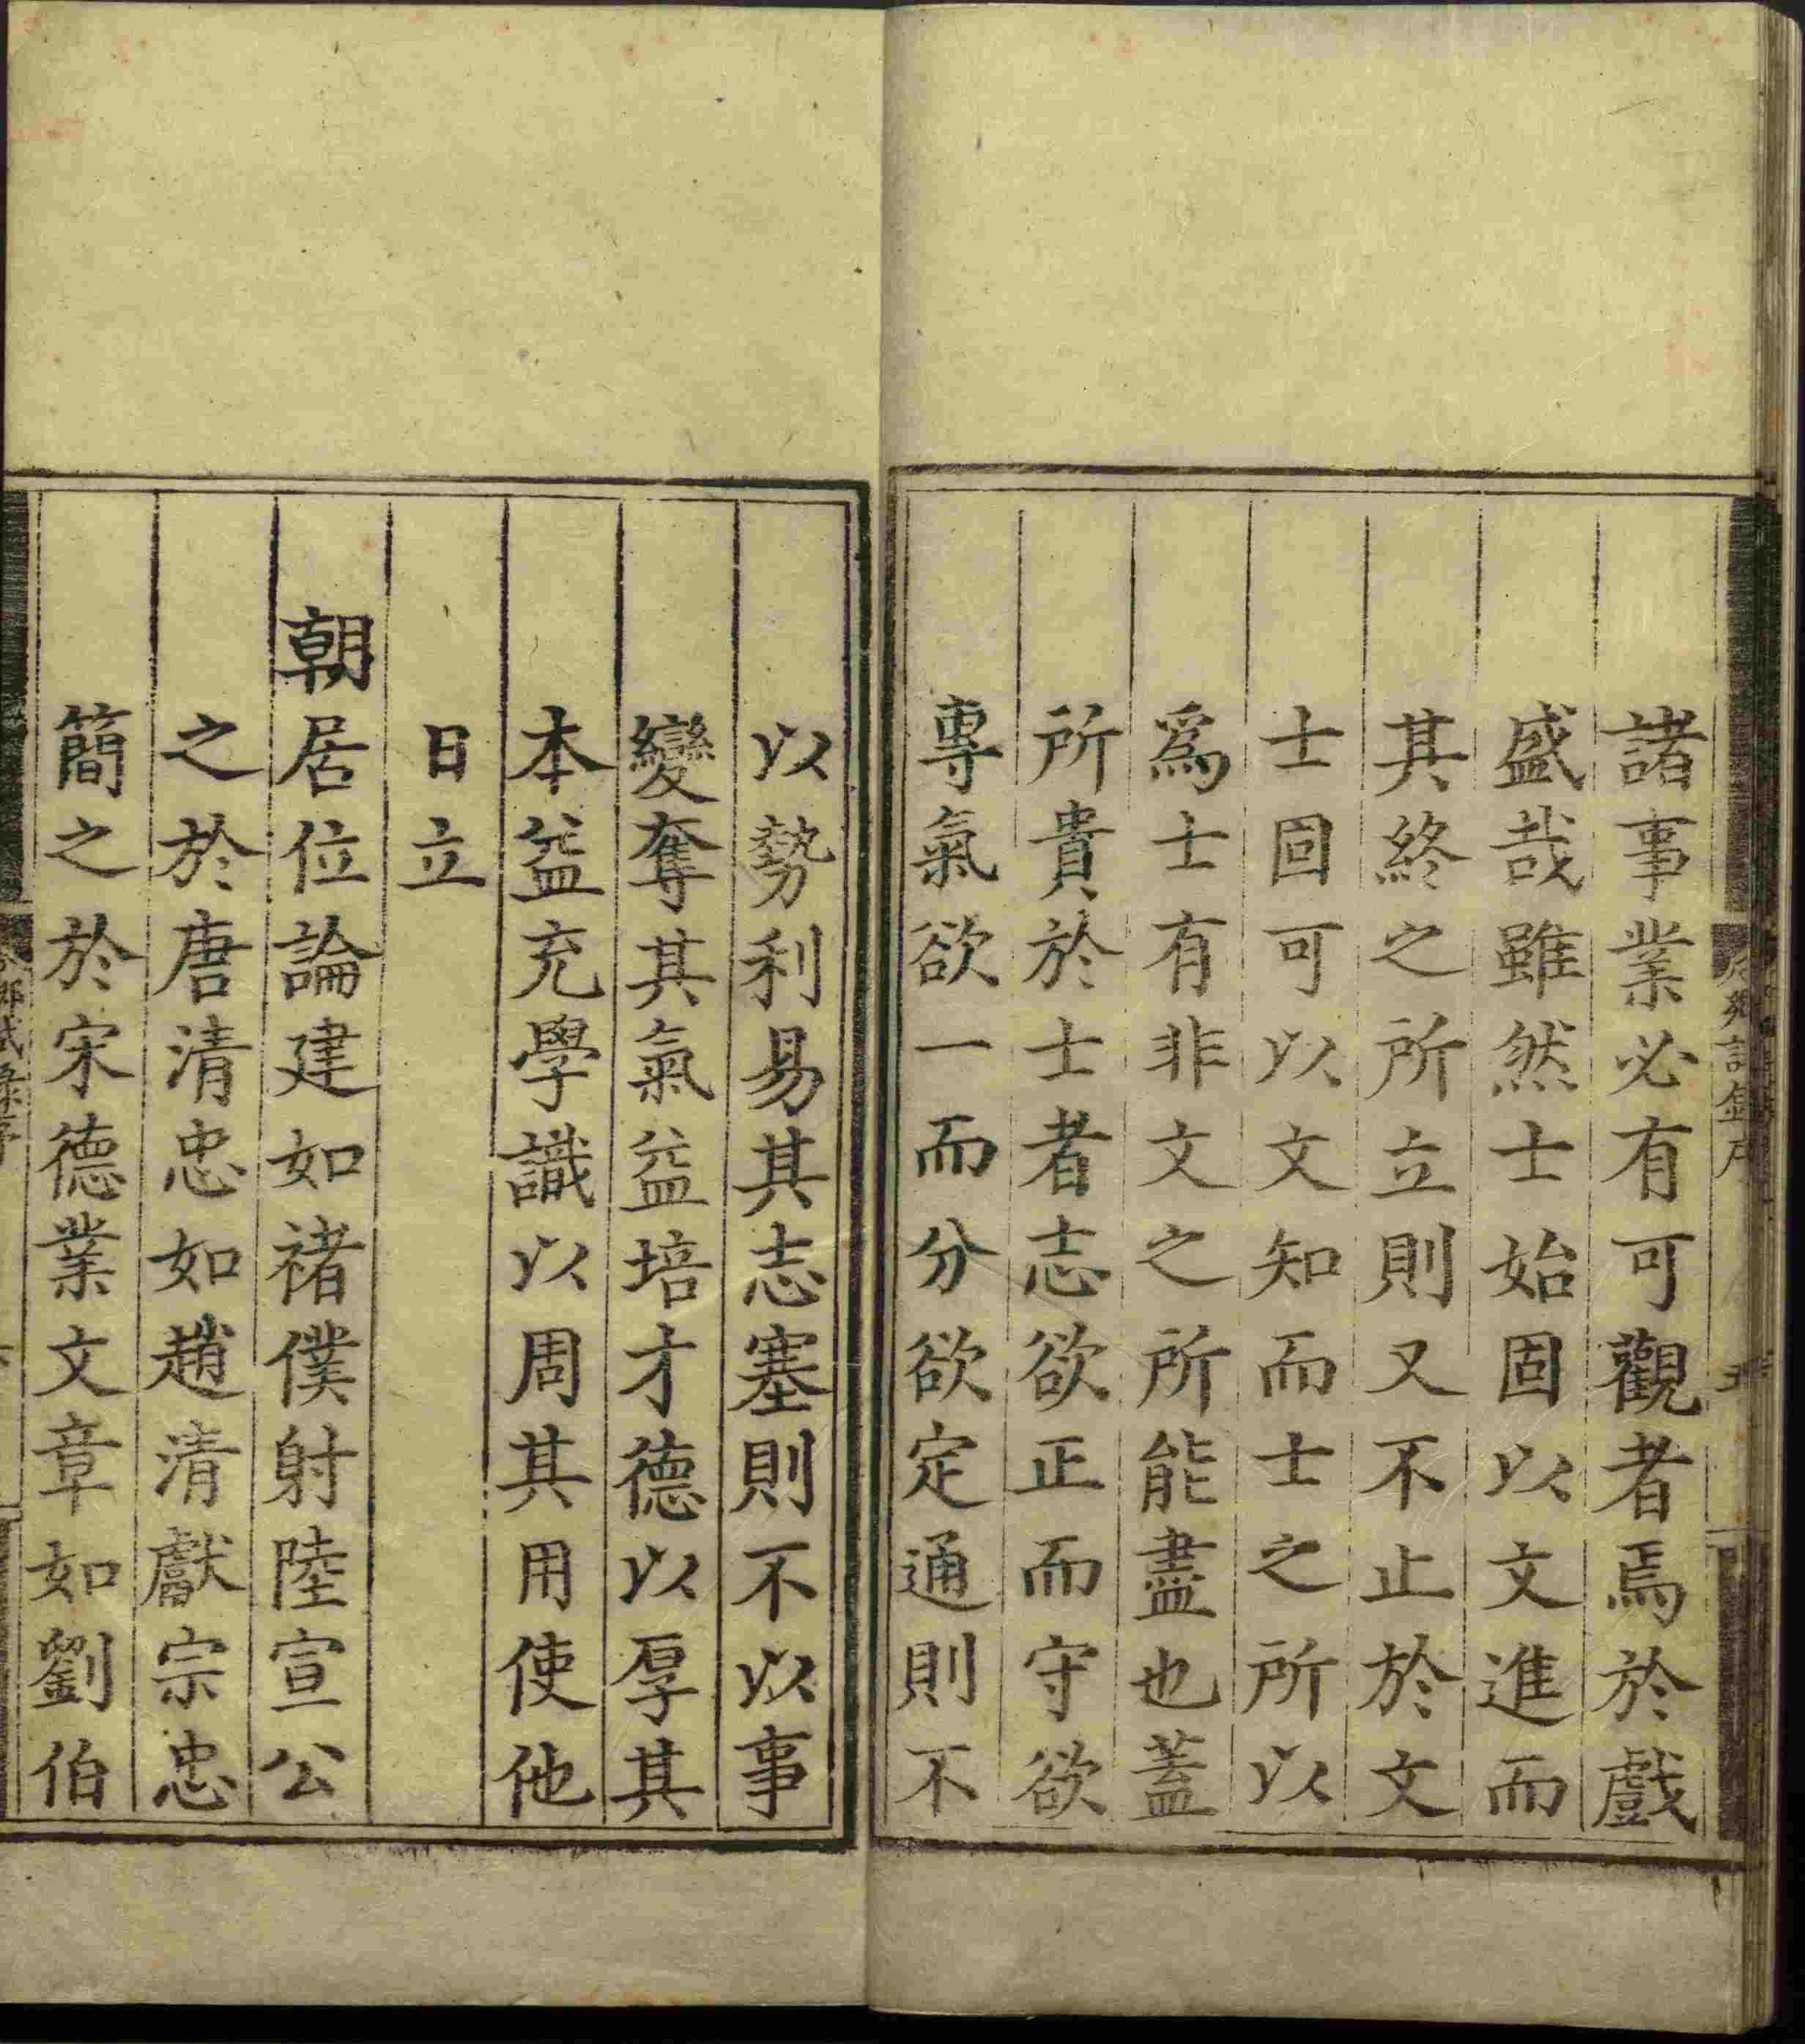 諸事業必有可觀者焉於戲
盛哉雖然士始固以文進而
其終之所立則又不止於文
士固可以文知而士之所以
爲士有非文之所能盡也蓋
所貴於士者志欲正而守欲
專氣欲一而分欲定通則不
以勢利易其志塞則不以事
變奪其氣益培才德以厚其
本益充學識以周其用使他
日立
朝居位論建如褚僕射陸宣公
之於唐清忠如趙清獻宗忠
簡之於宋德業文章如劉伯